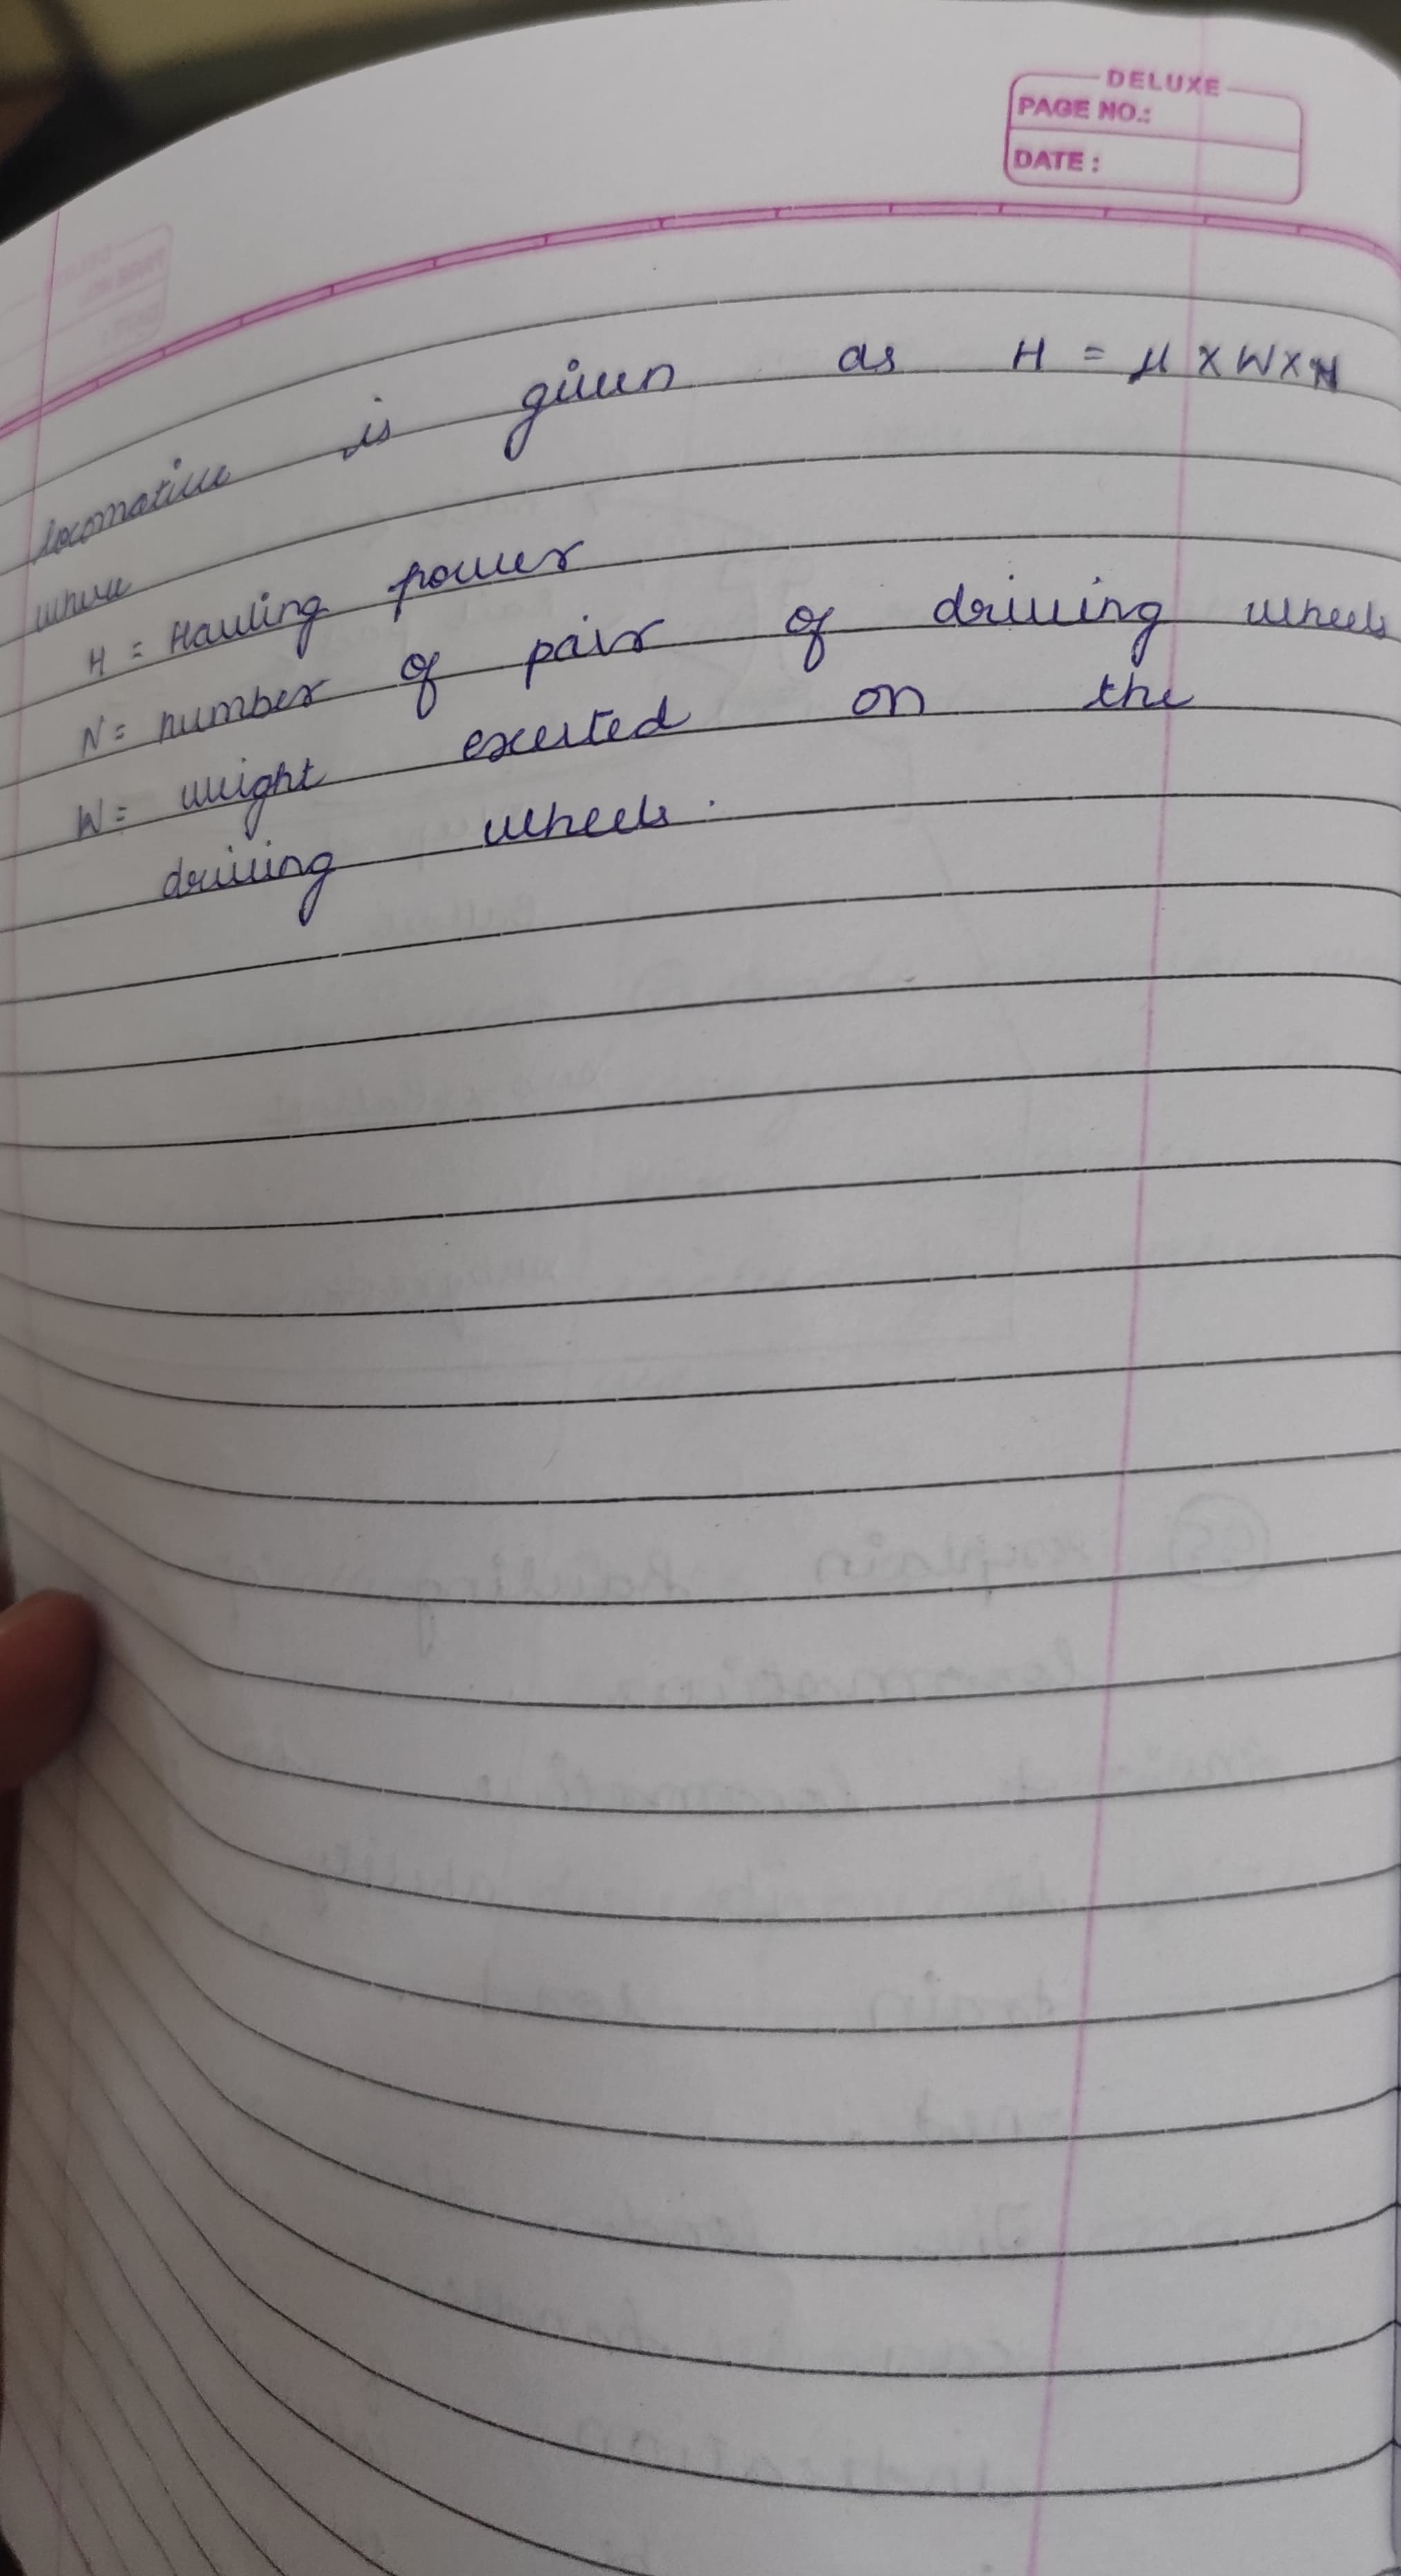 DELUXE
PAGE NO.:
DATE :
locomotive is given as H = μ x W x N
where
H = Hauling power
N = number of pair of driving wheels
W = weight exerted on the
driving wheels.